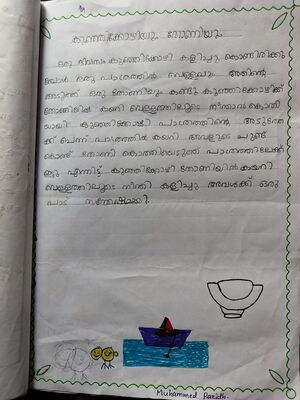 കുഞ്ഞിക്കോഴിയും തോണിയും
ഒരു ദിവസം കുഞ്ഞിക്കോഴി കളിച്ചു കൊണ്ടിരിക്കു
മ്പോൾ ഒരു പാത്രത്തിൽ വെള്ളവും അതിന്റെ
അടുത്ത് ഒരു തോണിയും കണ്ടു കുഞ്ഞികോഴിക്ക്
തോണിയിൽ കയറി വെള്ളത്തിലൂടെ നീന്താൻ കൊതി
യായി കുഞ്ഞികോഴി പാത്രത്തിന്റെ അടുത്തേ
ക്ക് ചെന്ന് പാത്രത്തിൽ കയറി അവളുടെ ചുണ്ട്
കൊണ്ട് തോണി കൊത്തിയെടുത്ത് പാത്രത്തിലേക്ക്
ഇട്ടു എന്നിട്ട് കുഞ്ഞികോഴി തോണിയിൽ കയറി
വെള്ളത്തിലൂടെ നീന്തി കളിച്ചു അവൾക്ക് ഒരു
പാട് സന്തോഷമായി.
Muhammed